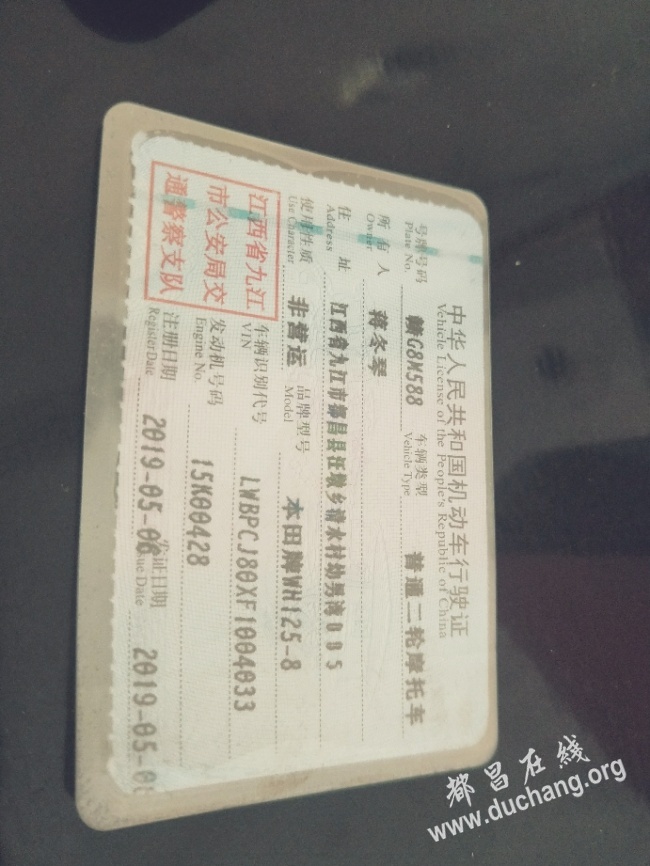 中华人民共和国机动车行驶证
Vehicle License of the People's Republic of China
号牌号码 赣G8M588 车辆类型 普通二轮摩托车
Plate No. Vehicle Type
所有人 蒋冬琴
Owner
住址 江西省九江市都昌县汪墩乡清水村幼男湾005
Address
使用性质 非营运 品牌型号 本田牌WH125-8
Use Character Model
江西省九江
市公安局交
通警察支队
车辆识别代号 LWBPCJ80XF1004033
VIN
发动机号码 15K00428
Engine No.
注册日期 2019-05-06 发证日期 2019-05-0
Register Date Issue Date
都昌在线
www.duchang.org